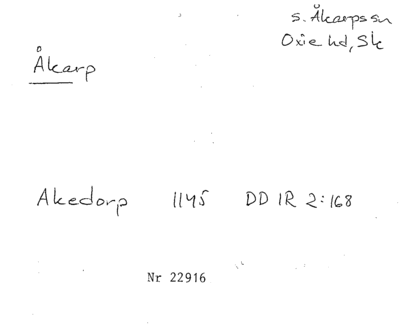 s. Åkarps sn
Oxie hd, Sk
Åkarp
Akedorp 1145 DD 1R 2:168
Nr 22916